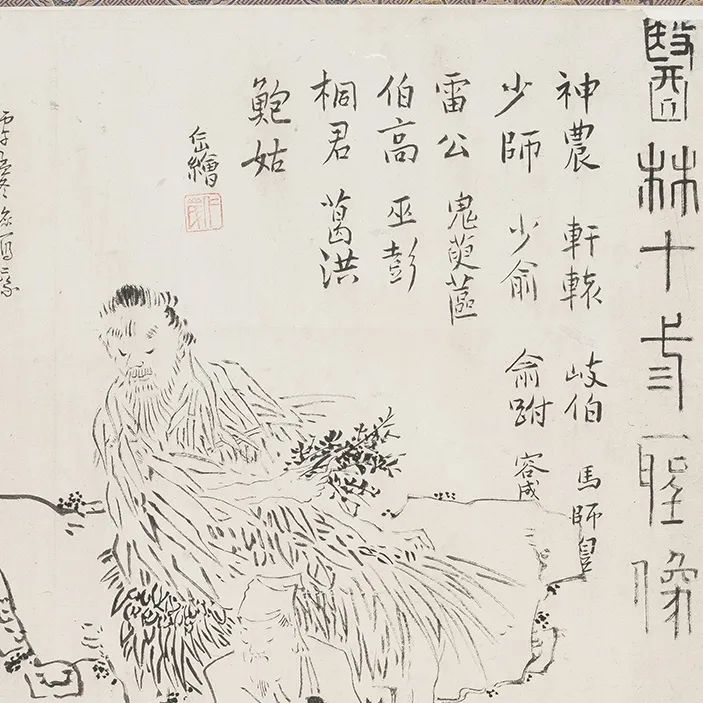 醫林十聖像
神農 軒轅 岐伯 馬師皇
少師 少俞 俞跗 容成
雷公 鬼萸蓲
伯高 巫彭
桐君 葛洪
鮑姑
繪
丙子孟冬